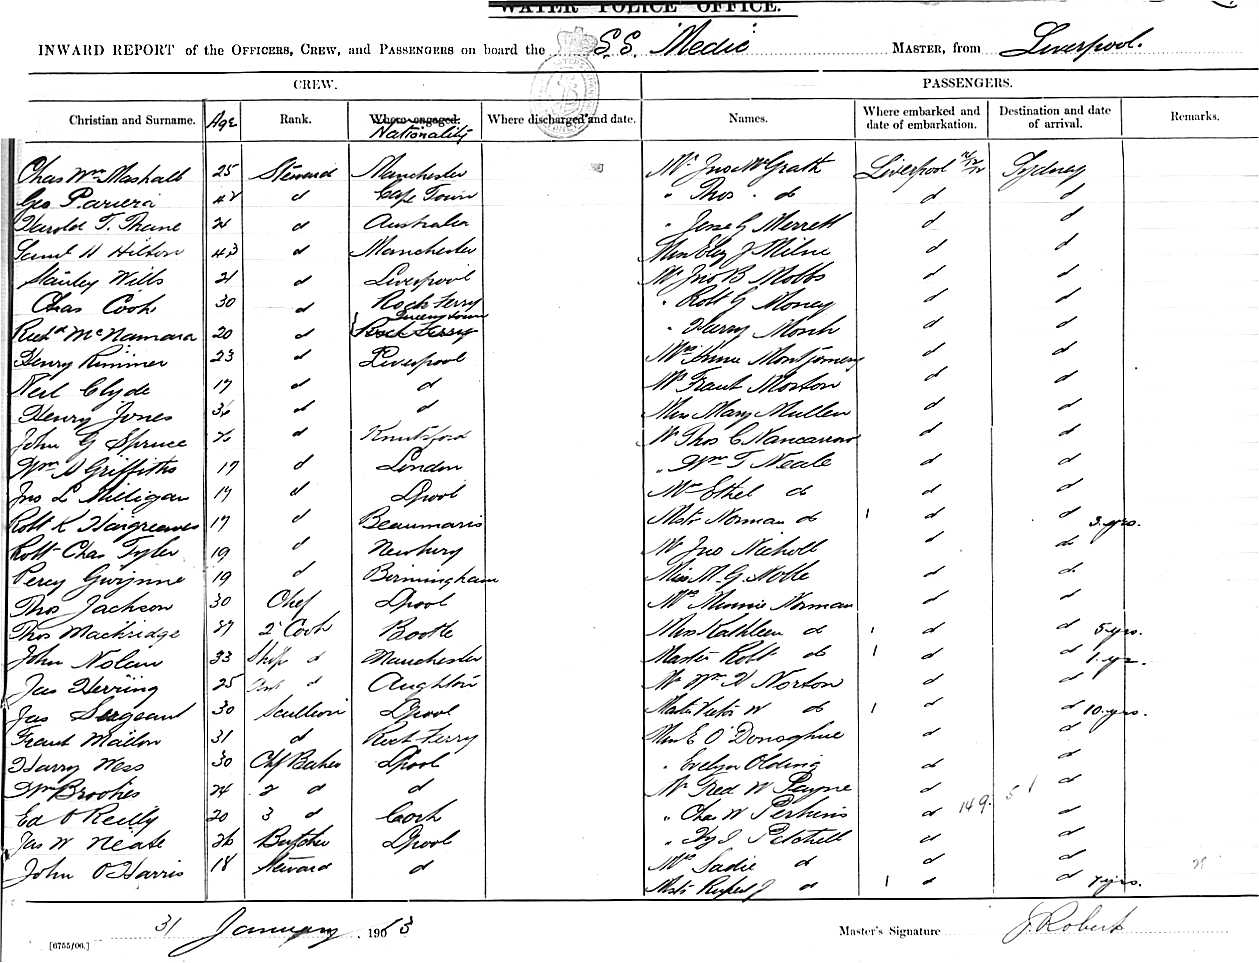 WATER POLICE OFFICE.
INWARD REPORT of the OFFICERS, CREW, and PASSENGERS on board the S.S. Medic MASTER, from Liverpool.
CREW. PASSENGERS.
Christian and Surname. Age Rank. Where engaged. Nationality Where discharged and date. Names. Where embarked and date of embarkation. Destination and date of arrival. Remarks.
Chas Wm Mashall 25 Steward Manchester Mr Jno McGrath Liverpool Sydney
Geo Pariera 42 d Cape Town " Thos. d d d
Harold T. Thane 21 d Australia " Jesse G Merrett d d
Saml H Hilton 43 d Manchester Miss Eliz J Milne d d
Stanley Wills 21 d Liverpool Mr Jno B Mobbs d d
Chas Cook 30 d Rock Ferry " Robt G Money d d
Richd McNamara 20 d Queenstown Rock Ferry " Harry Monk d d
Henry Rimmer 23 d Liverpool Mrs Annie Montgomery d d
Neil Clyde 17 d d Mr Frank Morton d d
Henry Jones 36 d d Miss Mary Mullen d d
John G Spruce 26 d Knutsford Mr Thos C Nancarrow d d
Wm A Griffiths 17 d London " Wm T Neale d d
Jno L Milligan 17 d Lpool Mrs Ethel d d d
Robt K Hargreaves 17 d Beaumaris Mstr Norman d 1 d d 3 yrs.
Robt Chas Tyler 19 d Newbury Mr Jno Nicholl d d
Percy Gwynne 19 d Birmingham Miss M. G. Noble d d
Thos Jackson 30 Chef Lpool Mrs Minnie Norman d d
Thos Mackridge 37 2 Cook Bootle Miss Kathleen d 1 d d 5 yrs.
John Nolan 33 Ships d Manchester Master Robt d 1 d d 1 yr.
Jas Herring 25 d Aughton Mr Wm H Norton d d
Jas Sergeant 30 Scullion Lpool Master Victor W d 1 d d 10 yrs.
Frank Mallon 31 d Rock Ferry Miss E O'Donoghue d d
Harry Wess 30 Chf Baker Lpool " Evelyn Olding d d
Wm Brookes 24 2 d d Mr Fred W Payne d d
Ed O'Reilly 20 3 d Cork " Chas W Perkins d 149. 51 d
Jas W Neate 26 Butcher Lpool " Hy J Petchell d d
John O Harris 18 Steward d Mrs Sadie d d d
Mstr Rupert J d 1 d d 7 yrs.
31 January 1913
[6755/06.]
Master's Signature J. Robert